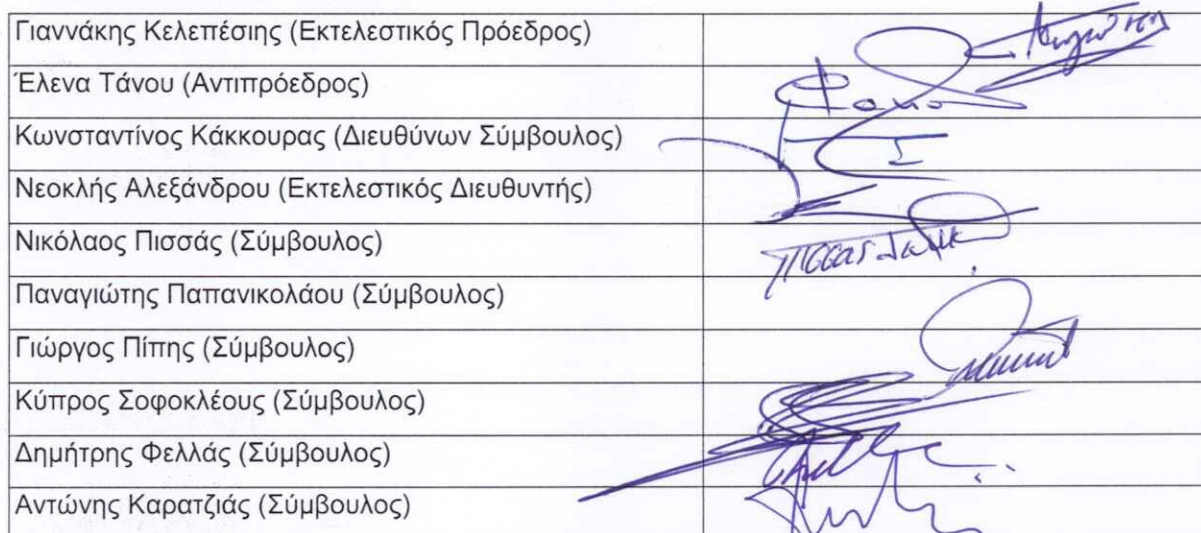 Γιαννάκης Κελεπέσιης (Εκτελεστικός Πρόεδρος)
Έλενα Τάνου (Αντιπρόεδρος)
Κωνσταντίνος Κάκκουρας (Διευθύνων Σύμβουλος)
Νεοκλής Αλεξάνδρου (Εκτελεστικός Διευθυντής)
Νικόλαος Πισσάς (Σύμβουλος)
Παναγιώτης Παπανικολάου (Σύμβουλος)
Γιώργος Πίπης (Σύμβουλος)
Κύπρος Σοφοκλέους (Σύμβουλος)
Δημήτρης Φελλάς (Σύμβουλος)
Αντώνης Καρατζιάς (Σύμβουλος)